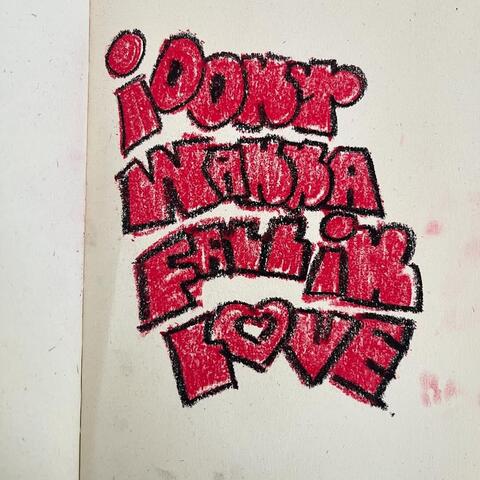 i DONT
WANNA
FALL iN
LOVE